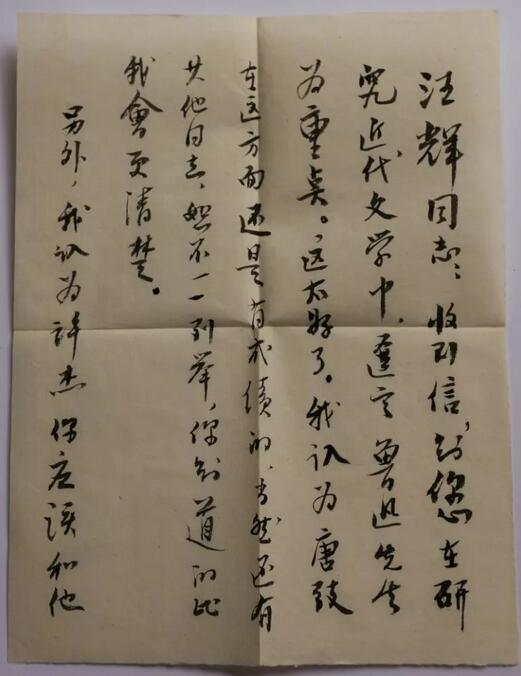 汪辉同志：收到信，对您在研
究近代文学中，选定鲁迅先生
为重点。这太好了。我认为唐弢
在这方面还是有成绩的，当然还有
其他同志，恕不一一列举，你知道的比
我會更清楚。
另外，我认为许杰你应该和他